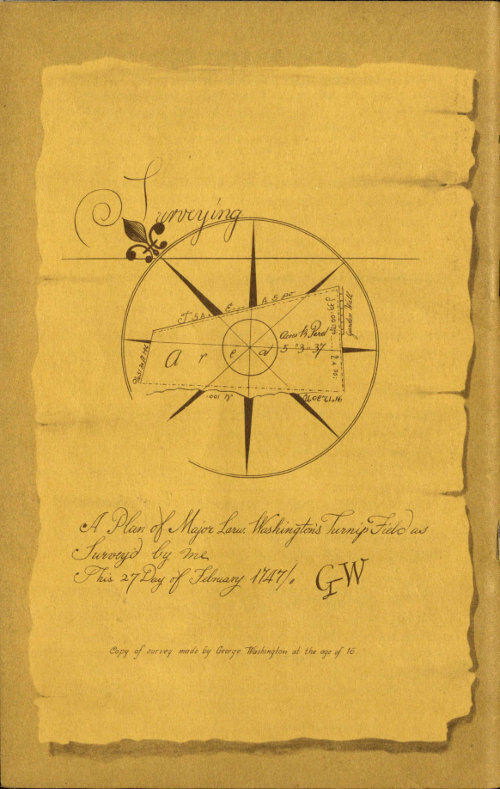 Surveying
Garden Wall
Acres R Perch
5 " 3 " 37
Area
A Plan of Major Lawr. Washington's Turnip Field as
Survey'd by me
This 27 Day of February 1747/8
GW
Copy of survey made by George Washington at the age of 16